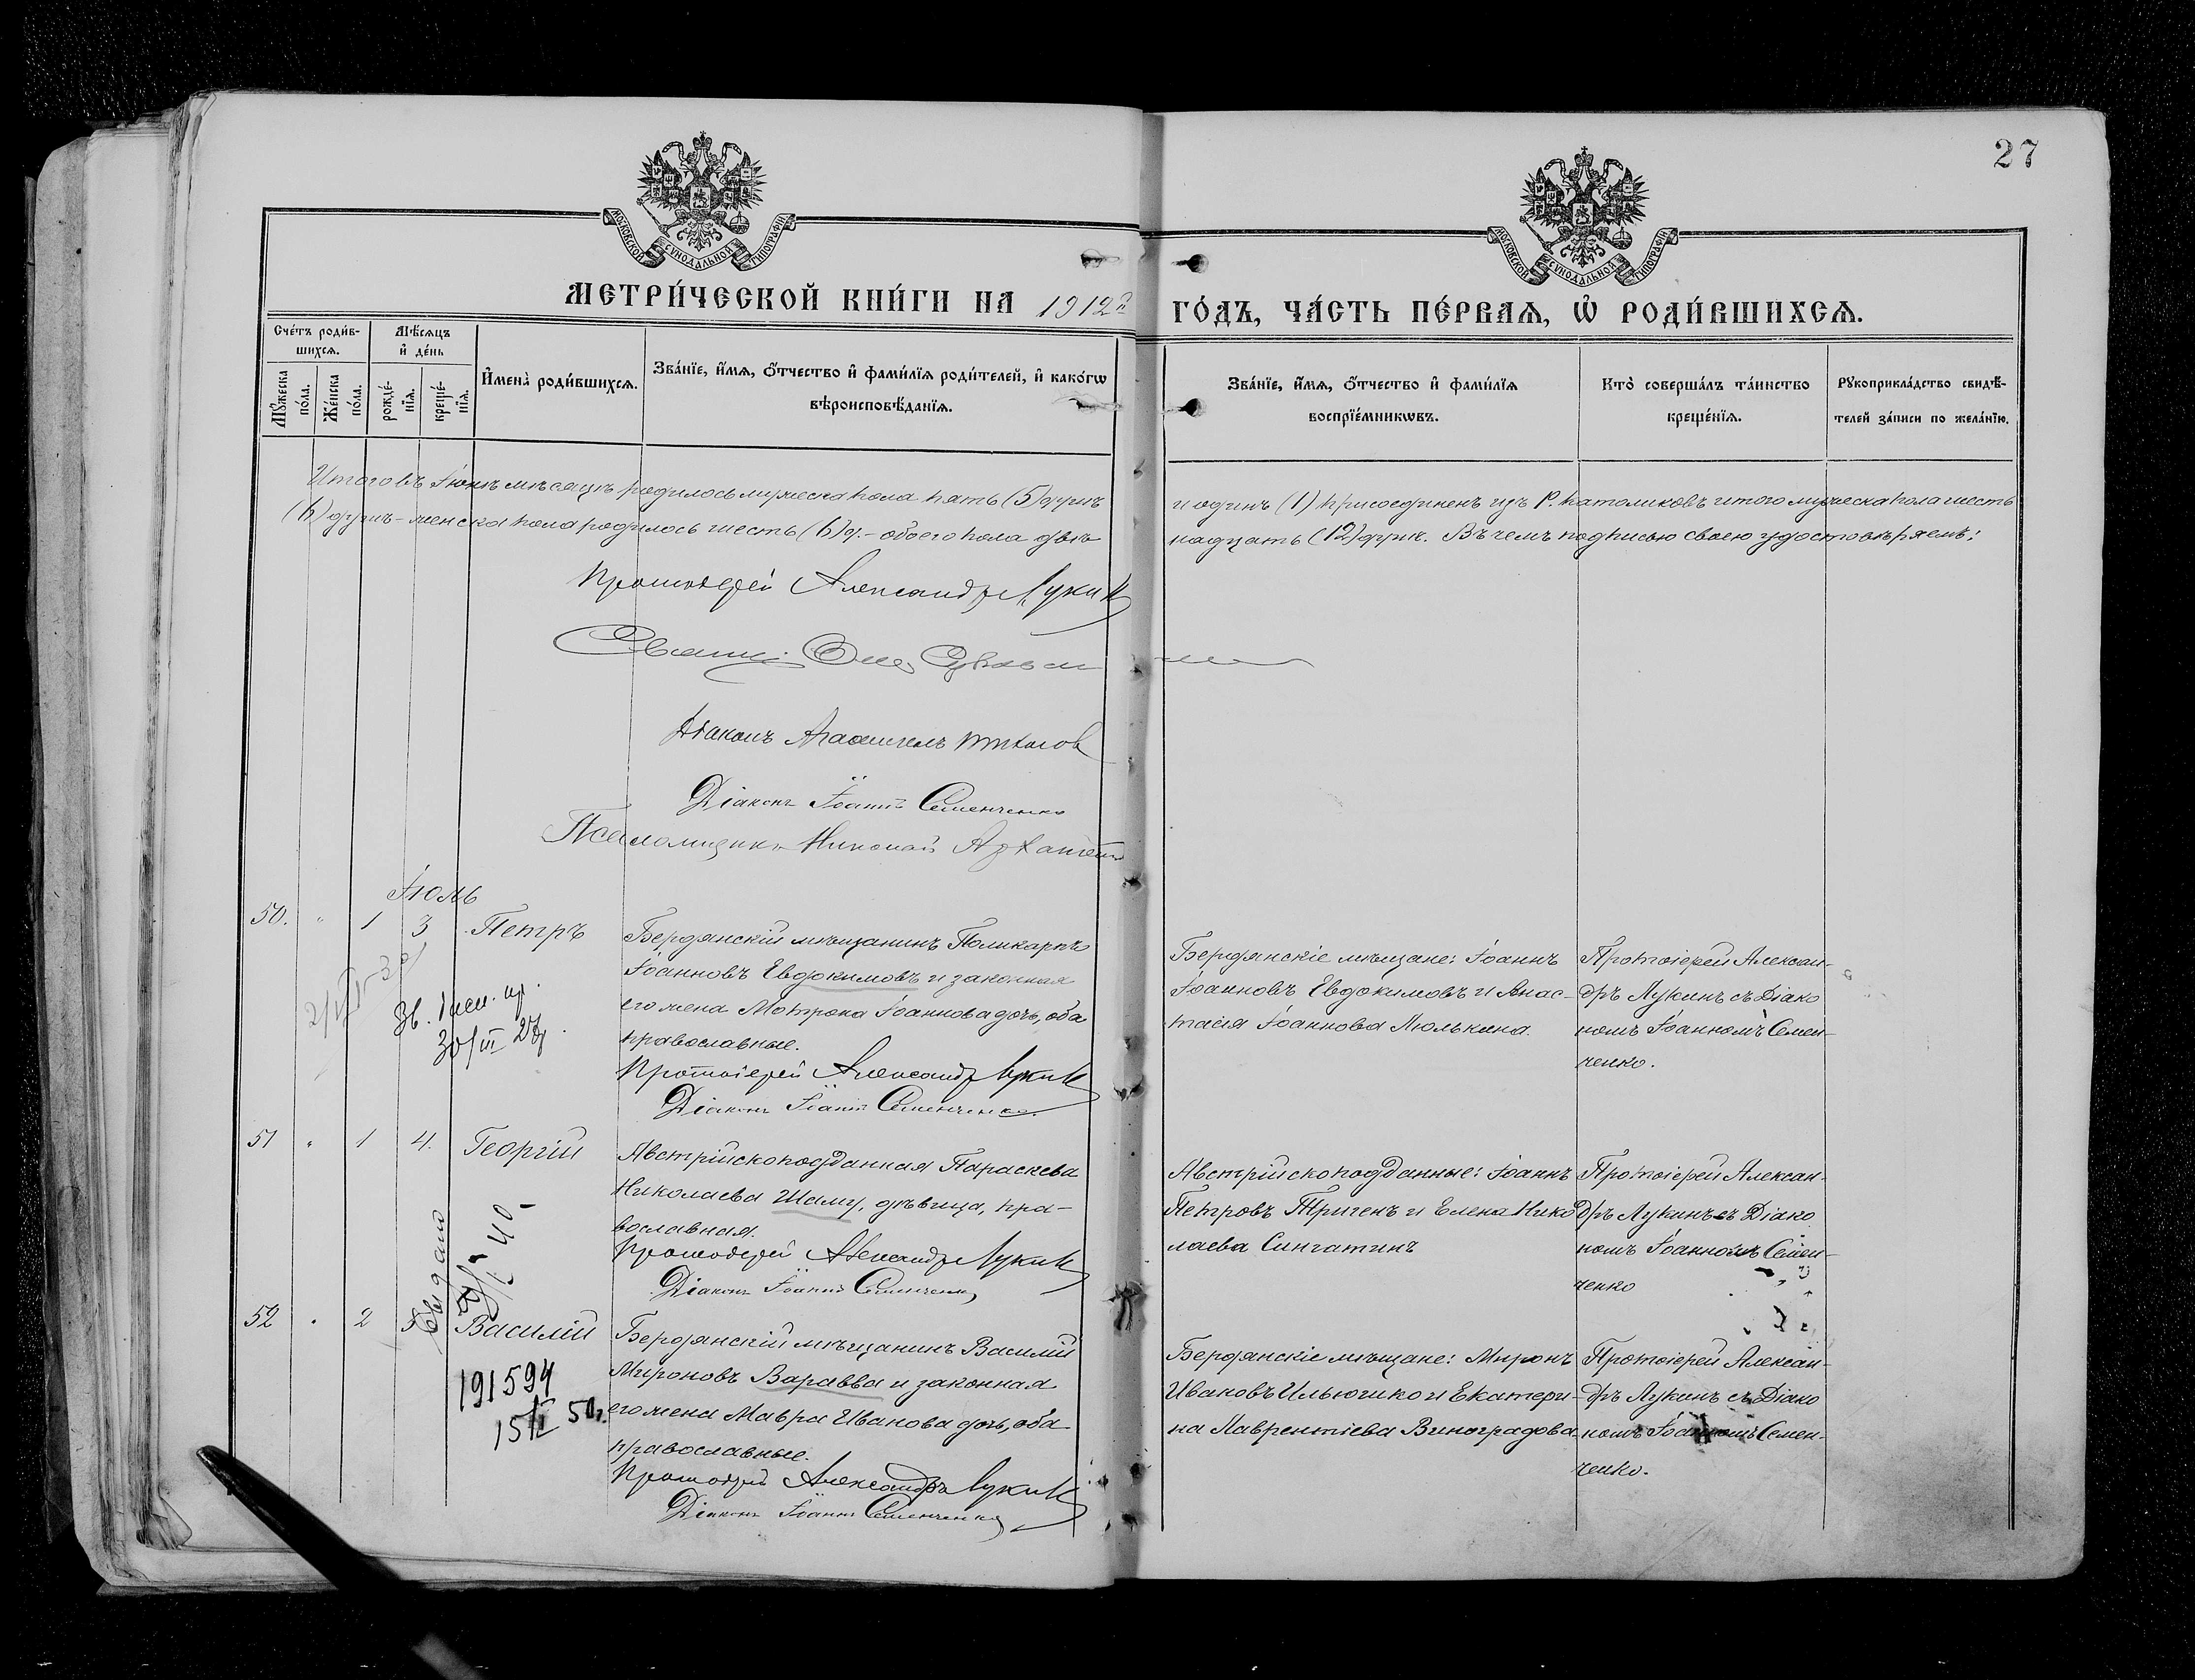 27
МОСКОВСКОЙ СУНОДАЛЬНОЙ ТИПОГРАФІИ
МОСКОВСКОЙ СУНОДАЛЬНОЙ ТИПОГРАФІИ
МЕТРИ́ЧЕСКОЙ КНИ́ГИ НА 1912й ГО́ДЪ, ЧА́СТЬ ПЕ́РВАѦ, Ѡ҆ РОДИ́ВШИХСѦ.
Сче́тъ роди́в-
шихсѧ.
Мѣ́сѧцъ
и҆ де́нь
Мꙋ́жеска
по́ла.
Же́нска
по́ла.
рожде́-
нїѧ.
креще́-
нїѧ.
И҆мена̀ роди́вшихсѧ.
Зва́нїе, и҆́мѧ, ѻ҆́тчество и҆ фами́лїѧ роди́телей, и҆ како́гѡ
вѣроисповѣ́данїѧ.
Зва́нїе, и҆́мѧ, ѻ҆́тчество и҆ фами́лїѧ
воспрїе́мникѡвъ.
Кто̀ соверша́лъ та́инство
креще́нїѧ.
Рꙋкоприкла́дство свидѣ́-
телей за́писи по жела́нїю.
Итого въ Іюнѣ мѣсяцѣ родилось мужеска пола пять (5) душъ и одинъ (1) присоединенъ изъ Р. католиковъ итого мужеска пола шесть
(6) душъ - женска пола родилось шесть (6) д. - обоего пола двѣ надцать (12) душъ. Въ чемъ подписью своею удостовѣряемъ:
Протоіерей Александръ Лукинъ
Діаконъ
Діаконъ Іоаннъ Семенченко
Псаломщикъ Николай
Іюль
50. " 1 3 Петръ
Бердянскій мѣщанинъ Поликарпъ
Іоанновъ Евдокимовъ и законная
его жена Матрона Іоаннова дочь, оба
православные.
Протоіерей Александръ Лукинъ
Діаконъ Іоаннъ Семенченко.
Бердянскіе мѣщане: Іоаннъ
Іоанновъ Евдокимовъ и Анас-
тасія Іоаннова Люлькина.
Протоіерей Алексан-
дръ Лукинъ съ Діако
номъ Іоанномъ Семен-
ченко.
30/III 27г.
51 " 1 4. Георгій
Австрійскоподданная Параскева
Николаева Шаму, дѣвица, пра-
вославная.
Протоіерей Александръ Лукинъ
Діаконъ Іоаннъ Семенченко
Австрійскоподданные: Іоаннъ
Петровъ Тригенъ и Елена Нико
лаева Сингатинъ
Протоіерей Алексан-
дръ Лукинъ съ Діако
номъ Іоанномъ Семен-
ченко
52 " 2 5 Василій
191594
15/II 50г.
Бердянскій мѣщанинъ Василій
Мироновъ Варавва и законная
его жена Мавра Иванова дочь, оба
православные.
Протоіерей Александръ Лукинъ
Діаконъ Іоаннъ Семенченко
Бердянскіе мѣщане: Миронъ
Ивановъ Ильючико и Екатери-
на Лаврентіева Виноградова
Протоіерей Алексан-
дръ Лукинъ съ Діако
номъ Іоанномъ Семен-
ченко.